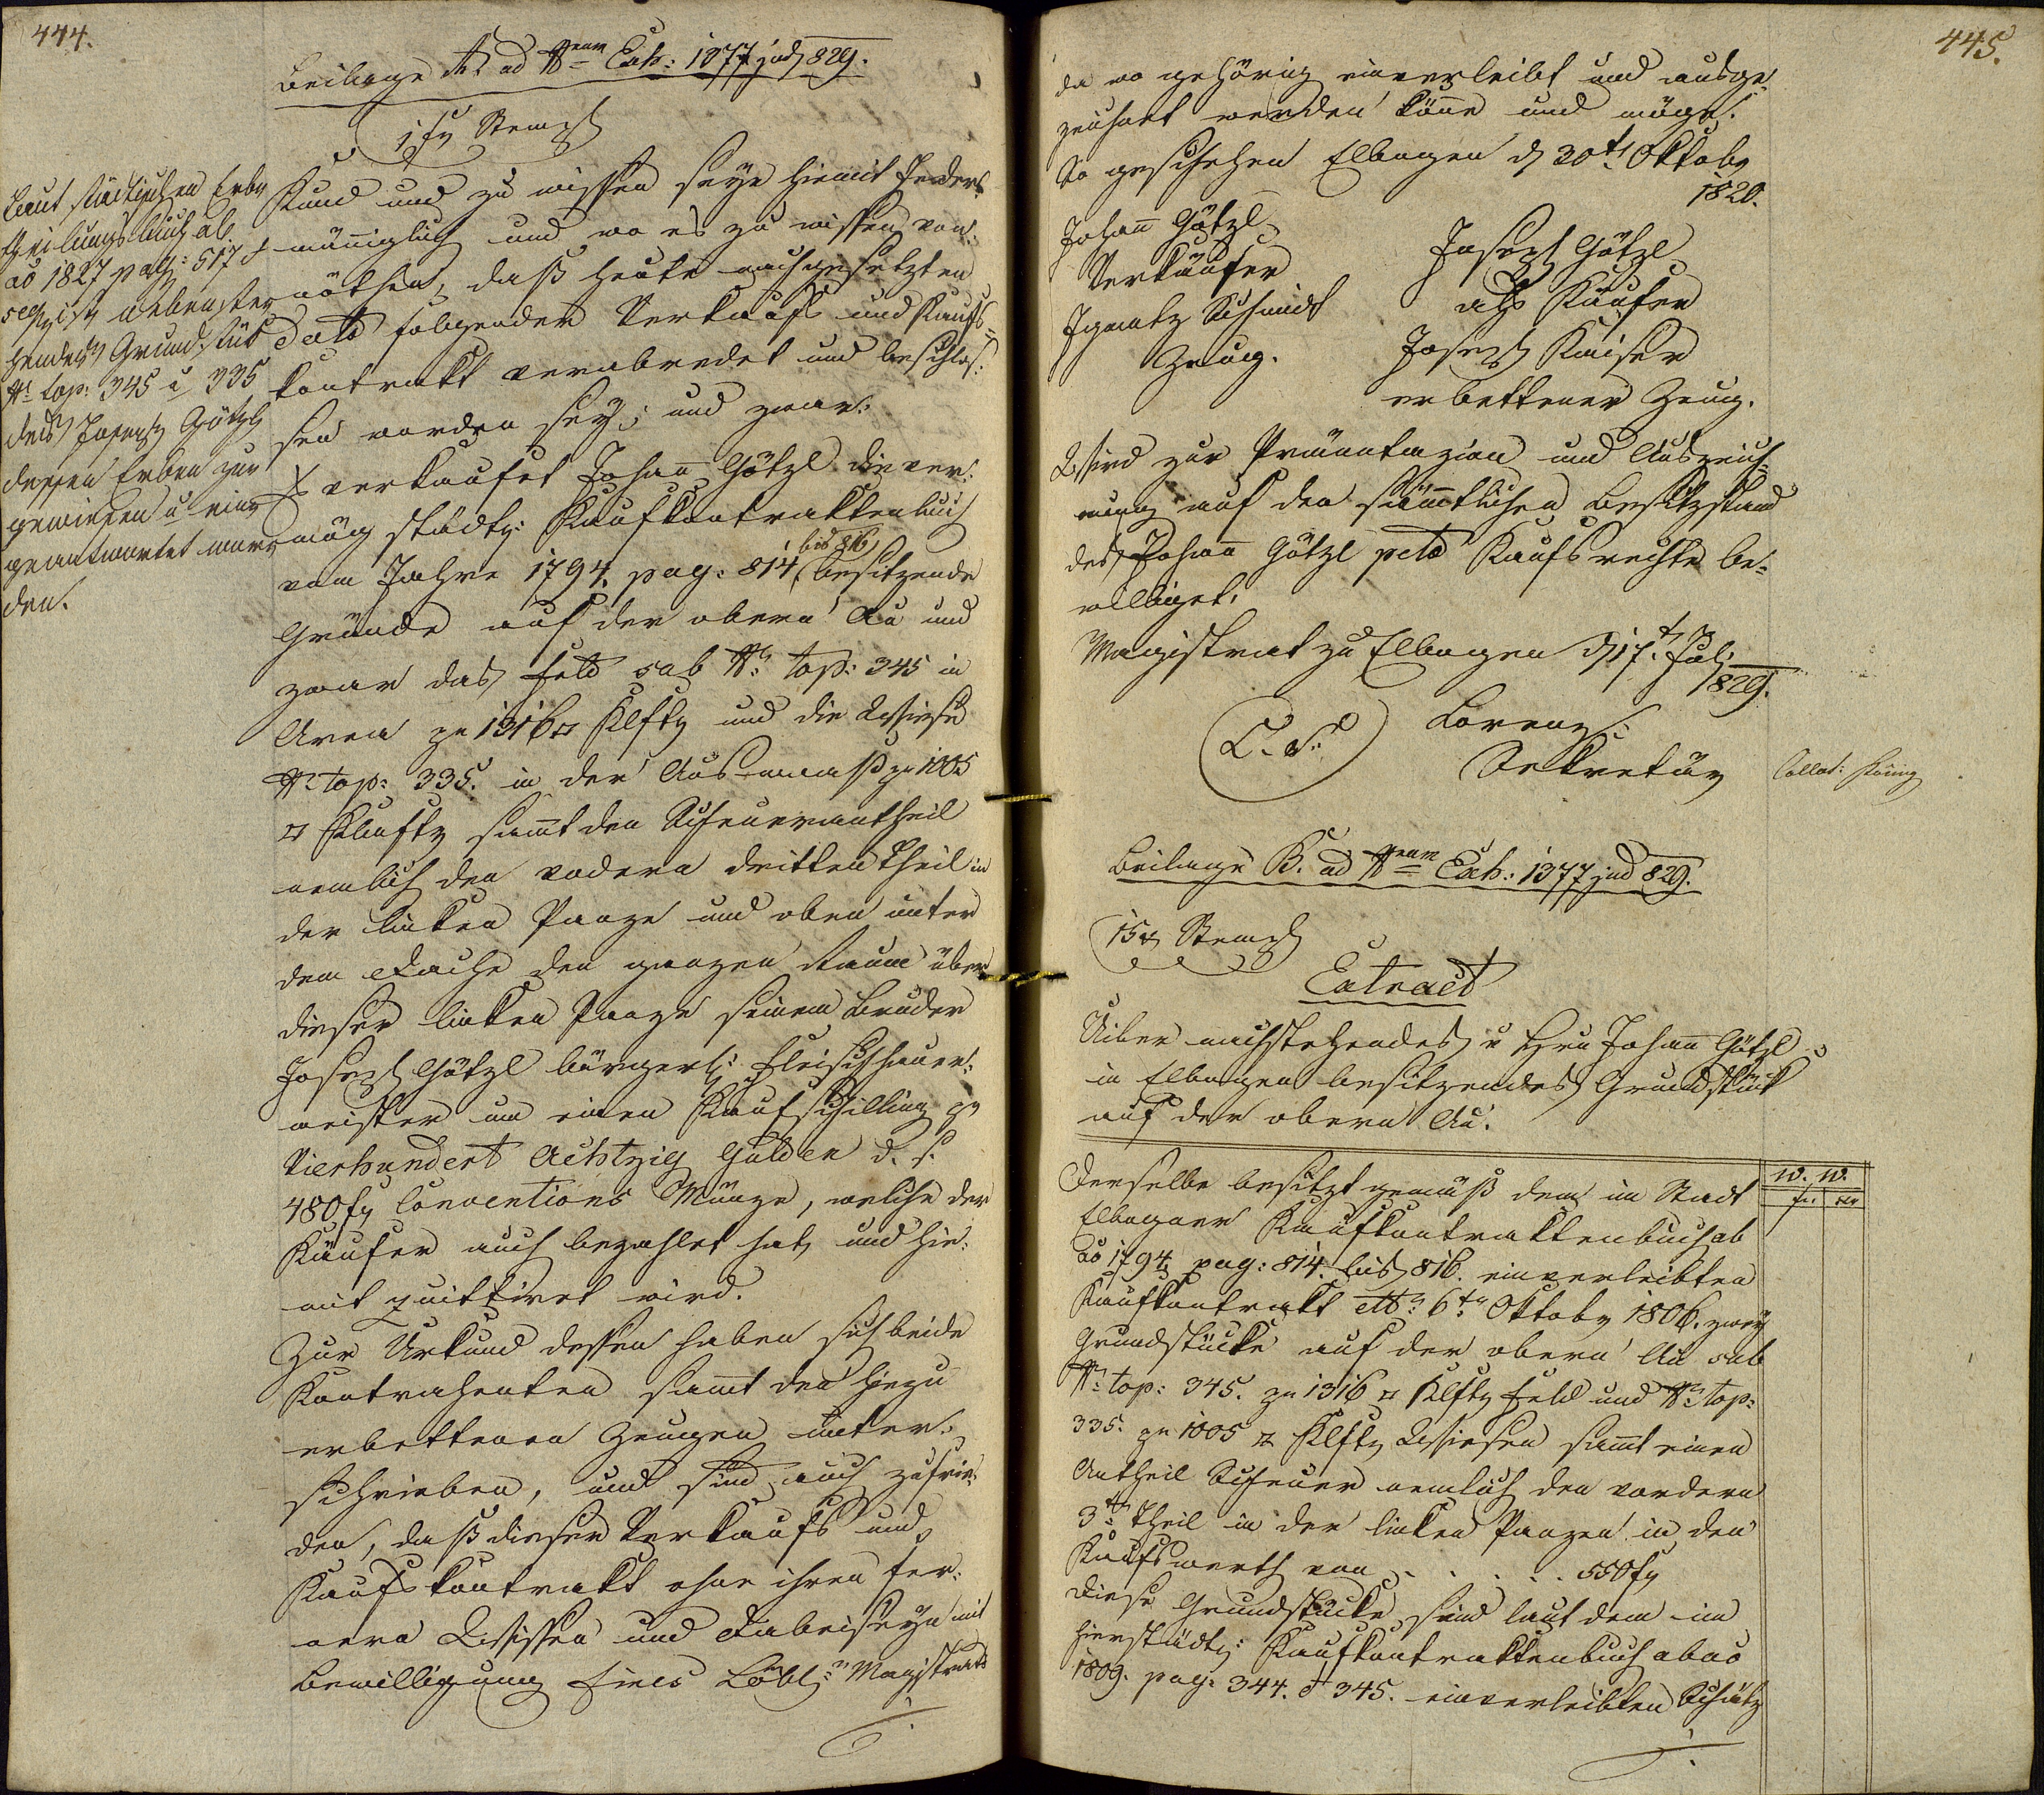 444.
Beilage A. ad Nrum Exh: 1377 jud 829.
1 fr Stempl
Laut städtischen Erb
theilungsbuch ab
ao 1827 pag: 517 &
seq ist nebenste
hendes Grundstük
Nr top: 345 u 335
des Joseph Götzl
dessen Erben zu
gewiesen u ein
geantwortet wor
den.
Kund und zu wissen seye hiemit Jeder
männiglich und wo es zu wissen von
nöthen, daß heute nachgesetzten
dato folgender Verkaufs und Kaufs=
kontrakt verabredet und beschlos:
sen worden sey; und zwar:
verkaufet Johann Götzl die ver:
mög städt: Kaufkontraktenbuch
vom Jahre 1794. pag: 814 bis 816 besitzende
Gründe auf der obern Au und
zwar das Feld sub Nr: top: 345 in
Area zu 1316 □ Klftr und die Wiese
Nr top: 335. in der Ausmaaß zu 1005
□ Klaftr sammt den Scheuerantheil
nemlich den vodern dritten Theil in
der linken Panze und oben unter
dem Dache den ganzen Raum über
dieser linken Panze seinem Bruder
Joseph Götzl bürgerl: Fleischhauer:
meister um einen Kaufschilling pr
Vierhundert Achtzig Gulden d. s.
480 fr Conventions Münze, welche der
Käufer auch bezahlet hat, und hie:
mit quittiret wird.
Zur Urkund dessen haben sich beide
Kontrahenten sammt den hiezu
erbettenen Zeugen unter:
schrieben, und sind auch zufrie:
den, daß dieser Verkaufs und
Kaufskontrakt ohne ihren fer:
nern Wissen und Dabeiseyn mit
Bewilligung Eines Löbl:n Magistrats
445.
da wo gehörig einverleibt und ausge:
zeichnet werden könne und möge.
So geschehen Elbogen d 30t Oktobr
1820.
Johann Götzl
Verkäufer
Joseph Götzl
als Käufer
Ignatz Schmidt
Zeug.
Joseph Kaiser
erbettener Zeug.
Wird zur Pränotazion und Auszeich
nung auf den sämmtlichen Besitzstand
des Johann Götzl pcto Kaufsrechte be:
williget.
Magistrat zu Elbogen d 17t Juli
829.
L. S.
Lorenz
Sekretär
Collat:
Beilage B. ad Nrum Exh: 1377 jud 829.
15 x Stempl
Extract
Uiber nachstehendes v Hrn Johann Götzl
in Elbogen besitzendes Grundstück
auf der obern Au.
W. W.
fr. xr
Derselbe besitzt gemäß dem im Stadt
Elbogner Kaufkontraktenbuch ab
ao 1794 pag: 814. bis 816. einverleibten
Kaufkontrakt dtto 6tn Oktobr 1806. zwey
Grundstücke auf der obern Au sub
Nr: top: 345. zu 1316 □ Klftr Feld und Nr top:
335. zu 1005 □ Klftr Wiesen sammt einen
Antheil Scheuer nemlich den vordern
3tn Theil in der linken Panzen in den
Kaufswerth von . . . . . 550 fr
Diese Grundstücke sind laut dem im
hierstädt: Kaufkontraktenbuch ab ao
1809. pag: 344. & 345. einverleibten Schätz